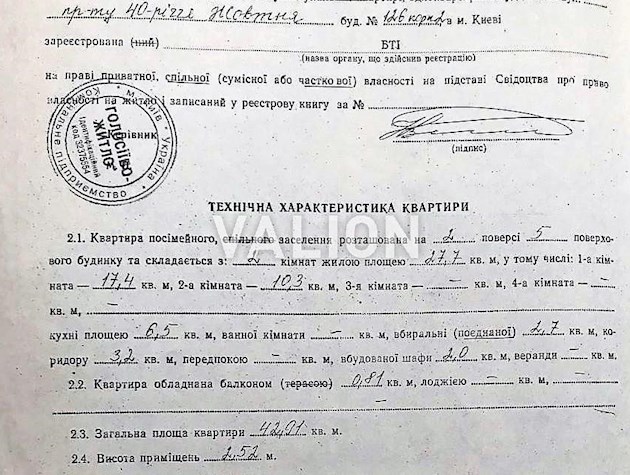 пр-ту 40-річчя Жовтня буд. № 126 корп 2 а м. Києві
зареєстрована (ний) БТІ
(назва органу, що здійснив реєстрацію)
на праві приватної, спільної (сумісної або часткової) власності на підставі Свідоцтва про право
власності на житло і записаний у реєстрову книгу за №
Керівник
(підпис)
Україна * м. Київ * Комунальне підприємство *
ГОЛОСІЇВО-ЖИТЛО
Ідентифікаційний код 32375554
VALION
ТЕХНІЧНА ХАРАКТЕРИСТИКА КВАРТИРИ
2.1. Квартира посімейного, спільного заселення розташована на 2 поверсі 5 поверхо-
вого будинку та складається з: 2 кімнат жилою площею 27,7 кв. м, у тому числі: 1-а кім-
ната — 17,4 кв. м, 2-а кімната — 10,3 кв. м, 3-я кімната — кв. м, 4-а кімната —
кв. м,
кухні площею 6,5 кв. м, ванної кімнати — кв. м, вбиральні (поєднаної) 2,7 кв. м, ко-
ридору 3,2 кв. м, передпокою — кв. м, вбудованої шафи 2,0 кв. м, веранди — кв. м,
2.2. Квартира обладнана балконом (терасою) 0,81 кв. м, лоджією — кв. м,
2.3. Загальна площа квартири 42,91 кв. м.
2.4. Висота приміщень 2,52 м.